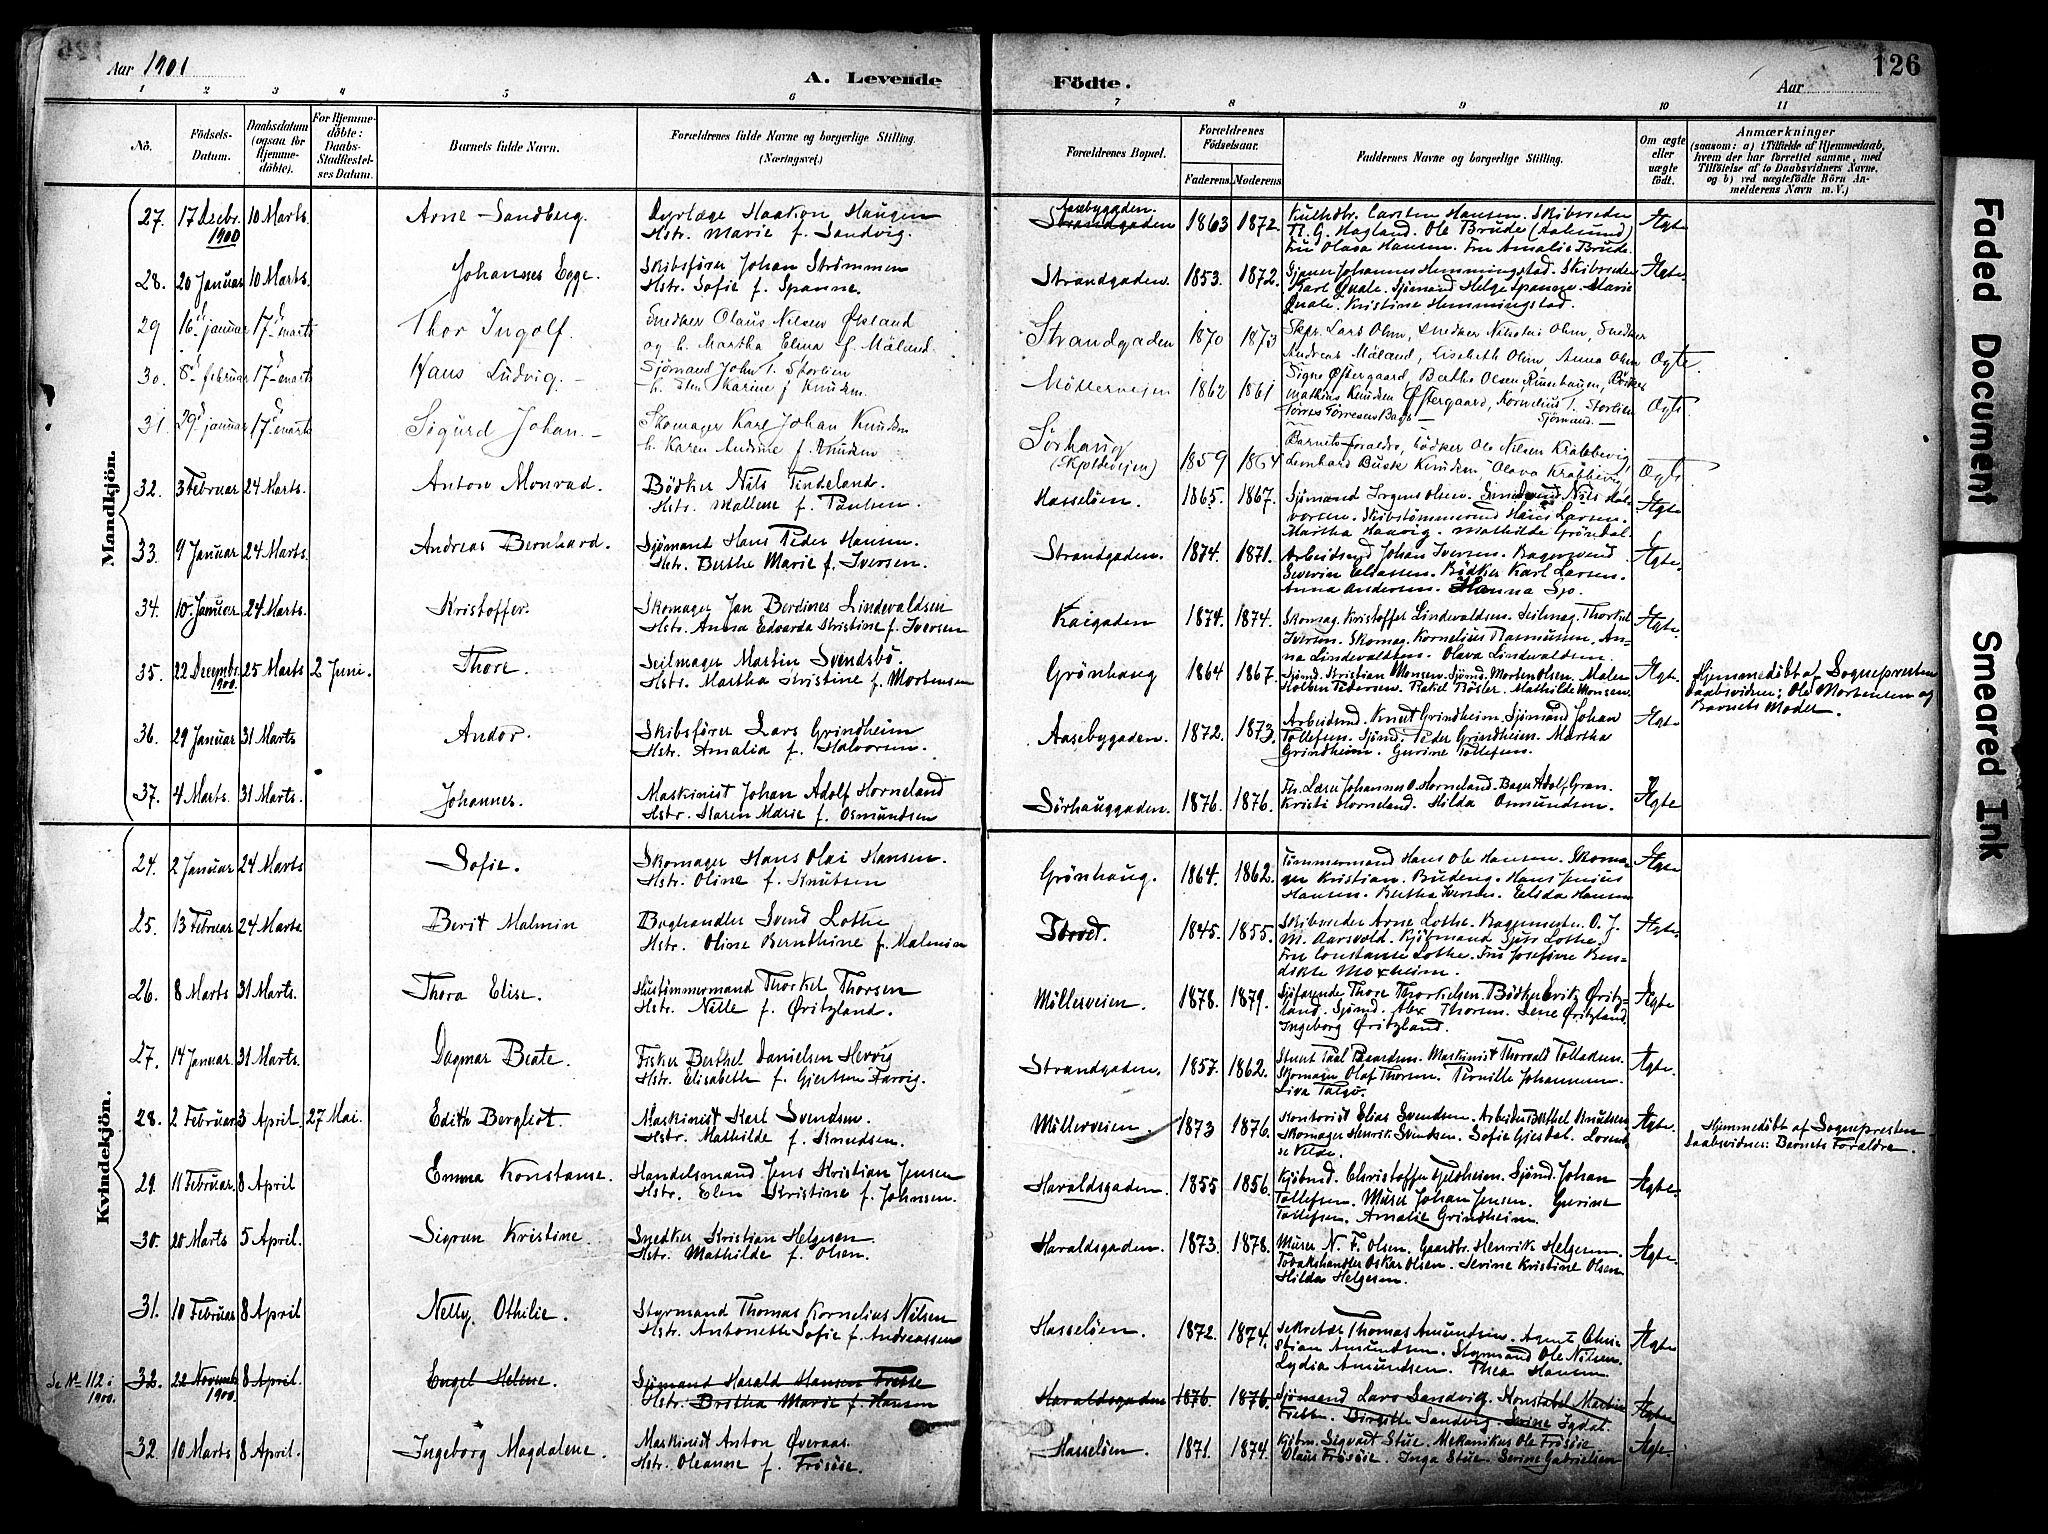 126
Aar 1901
A. Levende
Födte.
Aar
1 2 3 4 5 6 7 8 9 10 11
No.
Födsels-
Datum.
Daabsdatum
(ogsaa for
Hjemme-
döbte).
For Hjemme-
döbte:
Daabs-
Stadfæstel-
ses Datum.
Barnets fulde Navn.
Forældrenes fulde Navne og borgerlige Stilling.
(Næringsvei.)
Forældrenes Bopæl.
Forældrenes
Födselsaar.
Faderens. Moderens.
Faddernes Navne og borgerlige Stilling.
Om ægte
eller
uægte
født.
Anmærkninger
(saasom: a) i Tilfælde af Hjemmedaab,
hvem der har forrettet samme, med
Tilföielse af to Daabsvidners Navne,
og b) ved uægtefödte Börn An-
melderens Navn m. V.)
Mandkjön.
27. 17 Dezbr. 1900 10 Marts. Arne Sandberg.
Dyrlæge Haakon Haugen
Hstr. Marie f. Sandvig.
Aasebygaden. Strandgaden 1863 1872.
Carsten Hansen. Skibsreder
H. G. Hagland. Ole Brude (Aalesund)
Fru Olava Hansen. Fru Amalie Brude.
Ægte
28. 20 Januar 10 Marts. Johannes Egge.
Skibsfører Johan Strömmen
Hstr. Sofie f. Spanne.
Strandgaden. 1853. 1872.
Johannes Hemmingstad. Skibsreder
Karl Qvale. Sjömand Helge Spanne. Marie
Qvale. Kristine Hemmingstad.
Ægte.
29 16 januar 17 marts Thor Ingolf.
Snedker Olaus Nilsen Øksland
og h. Martha Elina f. Mäland.
Strandgaden 1870 1873
Skpr. Lars Olm, Snedker Nikolai Olm, Snedker
Andreas Mäland, Lisebeth Olm, Anna Olm
Ægte.
30. 8 februar 17 marts Hans Ludvig.
Sjömand John T. Störlien
Möllervejen 1862 1861
Signe Østergaard, Berthe Olsen,
Mathias Knudsen Østergaard, Kornelius T. Storlien
Sjømand.
Ægte.
31. 29 januar 17 marts Sigurd Johan
Skomager Karl Johan Knudsen
h. Karen Andrine f. Knudsen
Sörhaug
(Skjoldevejen) 1859 1864
Barnets Foraldre, Bödker Ole Nilsen Krabbevig,
Lenhard Busk Knudsen, Olava Krabbevig,
Ægte.
32. 3 Februar 24 Marts. Anton Monrad.
Bödker Nils Tindeland.
Hstr. Mallene f. Paulsen.
Hasselöen. 1865. 1867.
Sjömand Jrgens Olsen. Nils Hal-
vorsen. Skibstömmermd Hans Larsen.
Martha Haavig. Mathilde Gröndal.
Ægte
33. 9 Januar 24 Marts. Andreas Bernhard.
Sjömand Hans Peder Hansen.
Hstr. Berthe Marie f. Iversen.
Strandgaden. 1874. 1871.
Arbeidsmd Johan Iversen. Bagersvend
Severin Eliassen. Bödker Karl Larsen.
Anna Andersen. Hanna Sjo.
Ægte.
34. 10 Januar 24 Marts. Kristoffer.
Skomager Jan Berdines Lindevaldsen
Hstr. Anna Edvarda Kristine f. Iversen
Kaigaden 1874. 1874.
Skomag. Kristoffer Lindevaldsen. Seilmag. Thorkel
Iversen. Skomag. Kornelius Rasmussen. An-
na Lindevaldsen. Olava Lindevaldsen.
Ægte.
35. 22 Decembr. 1900. 25 Marts 2 Juni. Thore.
Seilmager Martin Svendsbö.
Hstr. Martha Kristine f. Mortensen
Grönhaug 1864 1867.
Sjömd. Kristian Monsen. Sjömd. Morten Olsen. Malen
Kolben Pedersen. Rakel Rösler. Mathilde Monsen.
Ægte.
Hjemmedöbt af Sognepresten
Daabsvidner: Ole Mortensen og
Barnets Moder.
36. 29 Januar 31 Marts Andor.
Skibsfører Lars Grindheim
Hstr. Amalia f. Halvorsen.
Aasebygaden. 1872. 1873.
Arbeidsmd. Knut Grindheim. Sjömand Johan
Tollefsen. Sjömd. Peder Grindheim. Martha
Grindheim. Gurine Tollefsen.
Ægte
37. 4 Marts. 31 Marts. Johannes.
Maskinist Johan Adolf Horneland
Hstr. Karen Marie f. Osmundsen
Sörhauggaden. 1876. 1876.
Fh. Lærer Johannes O. Horneland. Bager Adolf Gran.
Kristi Horneland. Hilda Osmundsen.
Ægte
Kvindekjön.
24. 2 Januar 24 Marts Sofie.
Skomager Hans Olai Hansen.
Hstr. Oline f. Knutsen
Grönhaug. 1864. 1862.
Tömmermand Hans Ole Hansen. Skoma-
ger Kristian. Hans Jenius
Hansen. Bertha Iversen. Elida Hansen
Ægte
25. 13 Februar 24 Marts Berit Malmin
Boghandler Svend Lothe
Hstr. Oline Bernthine f. Malmin
Torvet. 1845. 1855.
Skibsreder Arne Lothe. Bagermester O. J.
M. Aarsvold. Kjöbmand Sjur Lothe.
Fru Constanse Lothe. Fru Josefine Ben-
dikte Moxheim.
Ægte.
26. 8 Marts 31 Marts. Thora Elise.
Hustömmermand Thorkel Thorsen
Hstr. Nille f. Øritzland.
Möllerveien. 1878. 1879.
Sjöfarende Thore Thorkelsen. Bödker Øritz-
land. Sjömd. Alex Thorsen. Lene Øritzland.
Ingeborg Øritzland.
Ægte
27. 14 Januar. 31 Marts. Dagmar Beate.
Fisker Berthel Danielsen Hervig
Hstr. Elisabeth f. Gjertsen Farvig.
Strandgaden. 1857. 1862.
Stuert Paal Maskinist Thorvald Tollefsen.
Skomager Olaf Thorsen. Pernille Johannesen.
Liva
Ægte.
28. 2 Februar 3 April 27 Mai. Edith Bergliot.
Maskinist Karl Svendsen
Hstr. Mathilde f. Knudsen.
Möllerveien. 1873 1876.
Kontorist Elias Svendsen. Arbeider Berthel Knutsen
Skomager Henrik Svendsen. Sofie Gjesdal. Loren-
se Velde.
Ægte.
Hjemmedöbt af Sognepresten
Daabsvidner: Barnets Foraldre.
29. 11 Februar. 8 April Emma Konstanse.
Handelsmand Jens Kristian Jensen
Hstr. Elen Kristine f. Johnsen.
Haraldsgaden. 1855 1856.
Kjöbmd. Christoffer Tjelsheim. Sjömd. Johan
Tollefsen. Murer Johan Jensen. Gurine
Tollefsen. Amalie Grindheim.
Ægte.
30. 20 Marts 5 April. Sigrun Kristine.
Snedker Kristian Helgesen.
Hstr. Mathilde f. Olsen.
Haraldsgaden. 1873. 1878.
Murer N. F. Olsen. Gaardbr. Henrik Helgesen.
Tobakshandler Oskar Olsen. Sevine Kristine Olsen
Hilda Helgesen.
Ægte.
31. 10 Februar 8 April Nelly Othilie.
Styrmand Thomas Kornelius Nilsen
Hstr. Antonette Sofie f. Andreassen
Hasselöen. 1872. 1874.
Sekretær Thomas Amundsen. Agent Chri-
stian Amundsen. Styrmand Ole Nilsen.
Lydia Amundsen. Thea Hansen.
Ægte
Se No 112 i
1900.
32. 22 Novemb. 1900. 8 April. Engel Helene.
Sjömand Harald Hansen Frette
Hstr. Britha Marie f. Hansen
Haraldsgaden 1876. 1876.
Sjömand Lars Sandvig. Konstabel Martin
Birgitte Sandvig. Serine
Ægte
32. 10 Marts 8 April. Ingeborg Magdalene.
Maskinist Anton Øveraas.
Hstr. Oleanne f. Frösöse.
Hasselöen. 1871. 1874.
Kjöbm. Sigvart Stue. Mekanikus Ole Frösöse
Olaus Frösöse. Inga Stue. Serine Gabrielsen
Ægte.
Faded Document
Smeared Ink